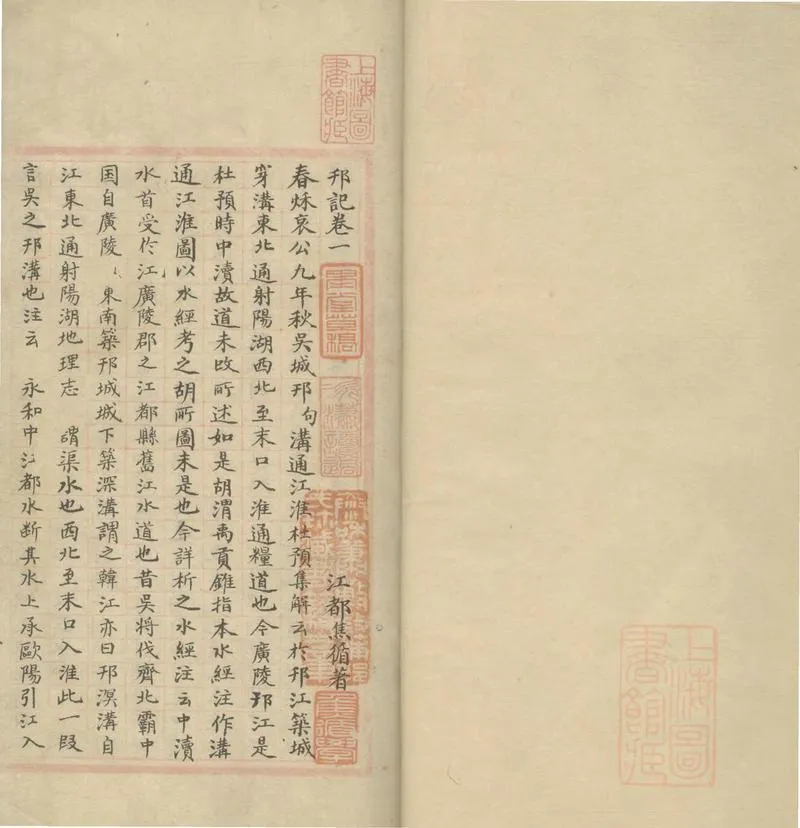 上海圖書館藏
邗記卷一
江都焦循著
春秌哀公九年秋吳城邗句溝通江淮杜預集解云於邗江築城
穿溝東北通射陽湖西北至末口入淮通糧道也今廣陵邗江是
杜預時中瀆故道未改所述如是胡渭禹貢錐指本水經注作溝
通江淮圖以水經考之胡所圖未是也今詳析之水經注云中瀆
水首受於江廣陵郡之江都縣舊江水道也昔吳將伐齊北霸中
国自廣陵東南築邗城城下築深溝謂之韓江亦曰邗溟溝自
江東北通射陽湖地理志 謂渠水也西北至末口入淮此一段
言吳之邗溝也注云 永和中江都水断其水上承歐陽引江入
上海圖書館藏